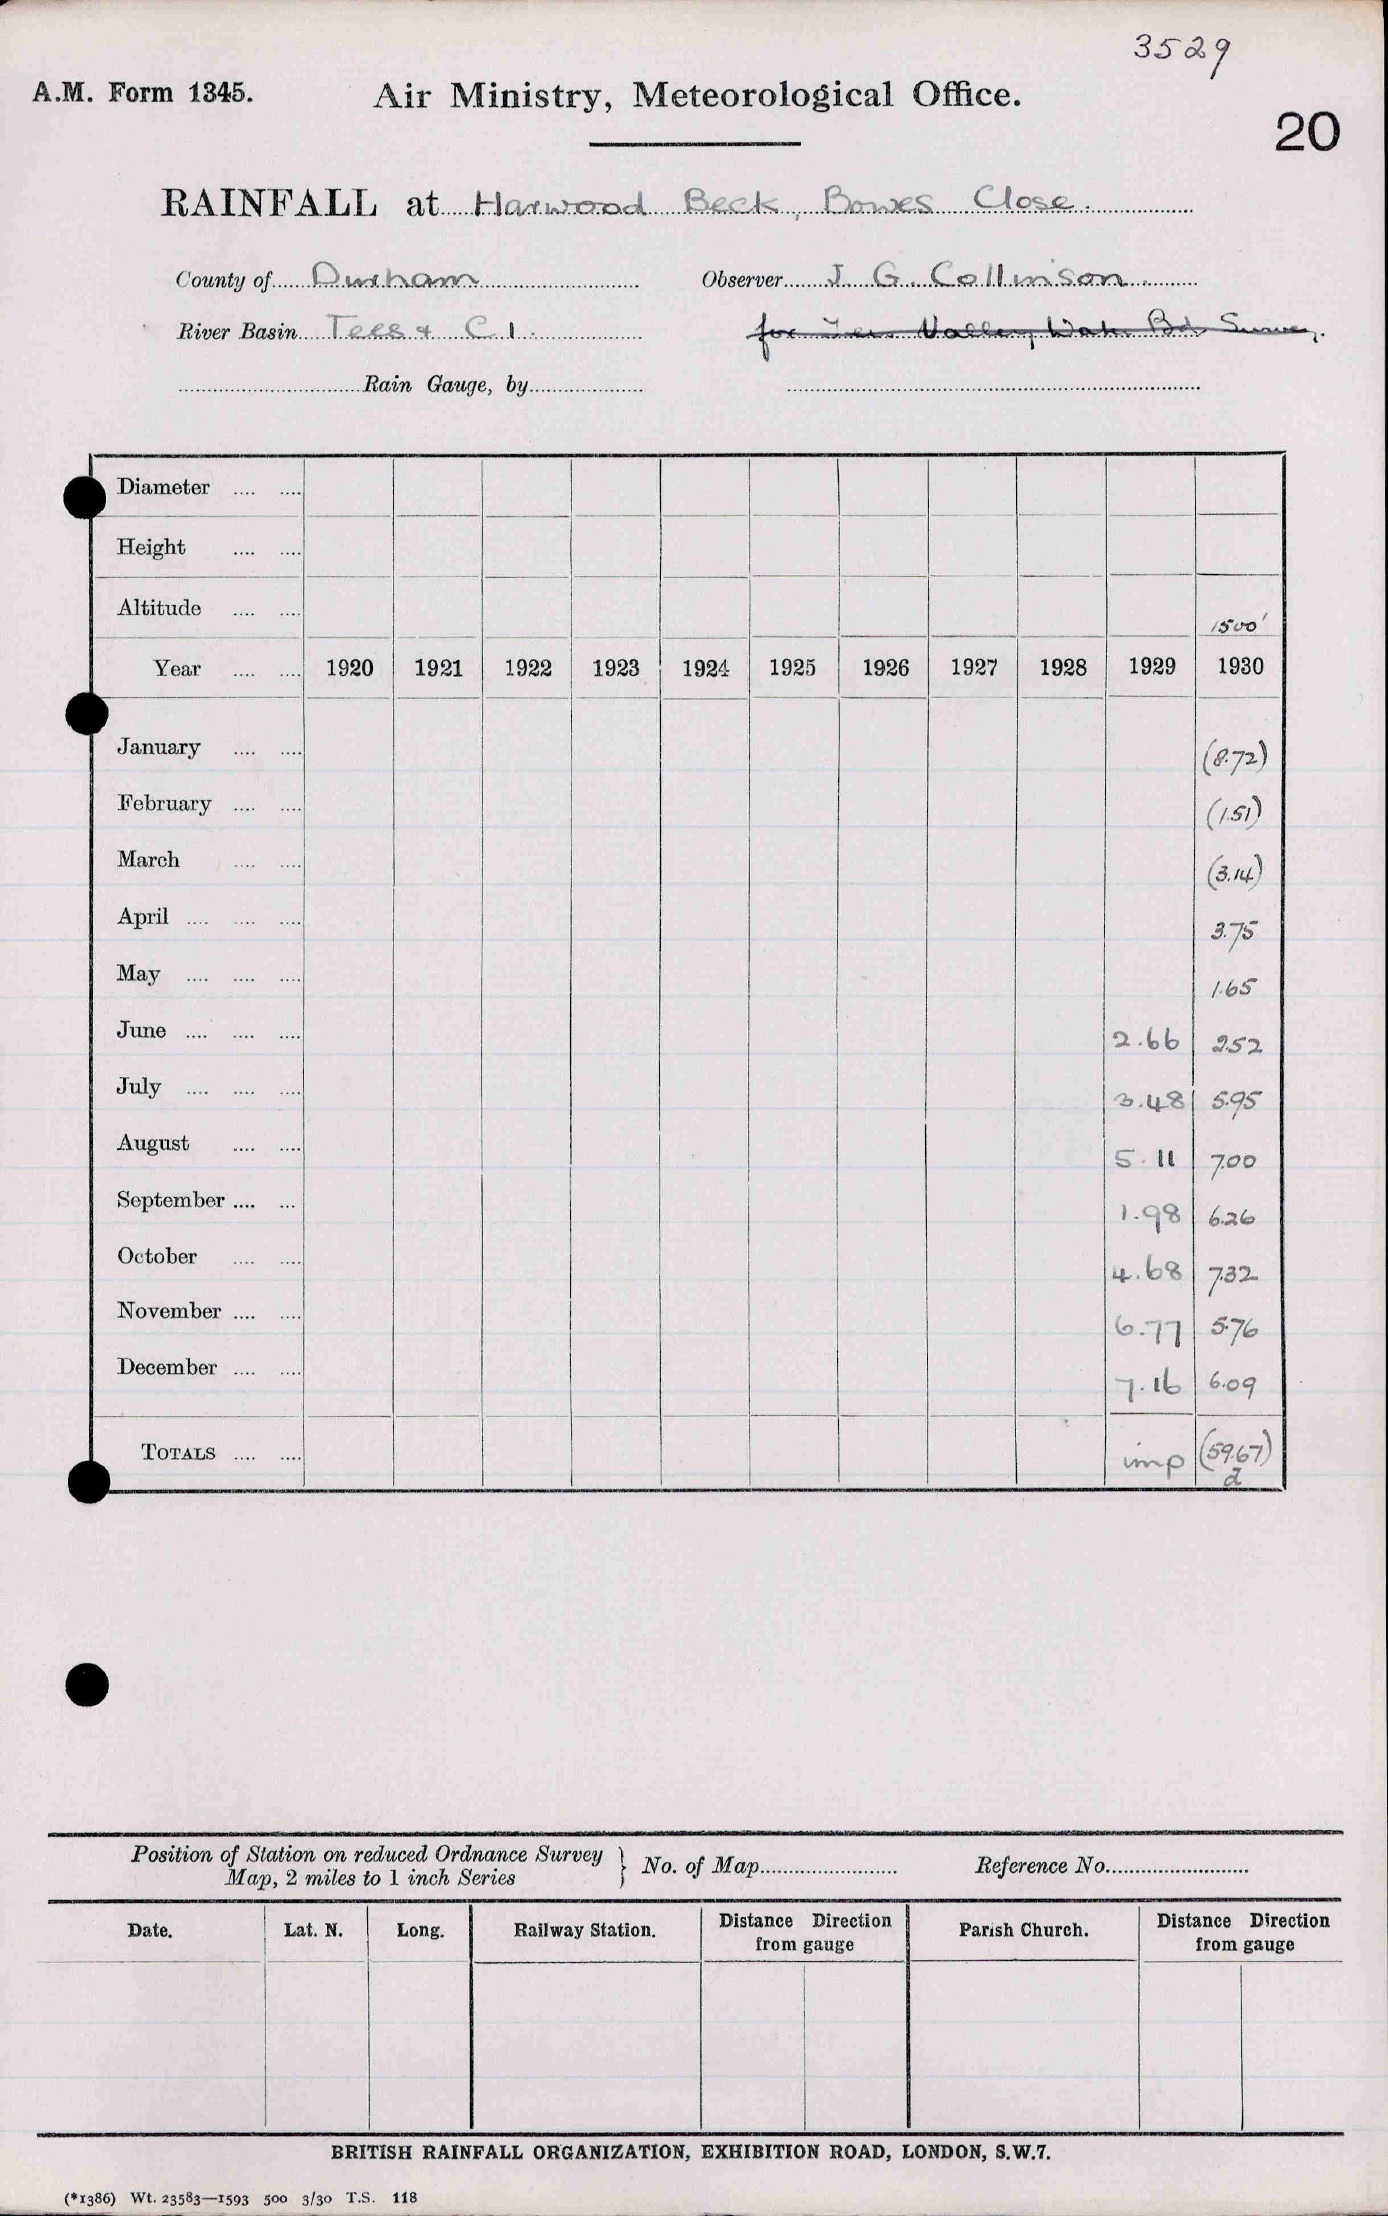 3529
A.M. Form 1345. Air Ministry, Meteorological Office.
20
RAINFALL at Harwood Beck, Bowes Close.
County of Durham Observer J. G. Collinson.
River Basin Tees & C 1. for Tees Valley Water Bd. Survey.
Rain Gauge, by
Diameter .... ....
Height .... ....
Altitude .... .... 1500'
Year .... .... 1920 1921 1922 1923 1924 1925 1926 1927 1928 1929 1930
January .... .... (8.72)
February .... .... (1.51)
March .... .... (3.14)
April .... .... .... 3.75
May .... .... .... 1.65
June .... .... .... 2.66 2.52
July .... .... .... 3.48 5.95
August .... .... 5.11 7.00
September .... ... 1.98 6.26
October .... .... 4.68 7.32
November .... .... 6.77 5.76
December .... .... 7.16 6.09
TOTALS .... .... imp (59.67)
d
Position of Station on reduced Ordnance Survey
Map, 2 miles to 1 inch Series } No. of Map Reference No.
Date. Lat. N. Long. Railway Station. Distance Direction from gauge Parish Church. Distance Direction from gauge
BRITISH RAINFALL ORGANIZATION, EXHIBITION ROAD, LONDON, S.W.7.
(*1386) Wt. 23583—1593 500 3/30 T.S. 118